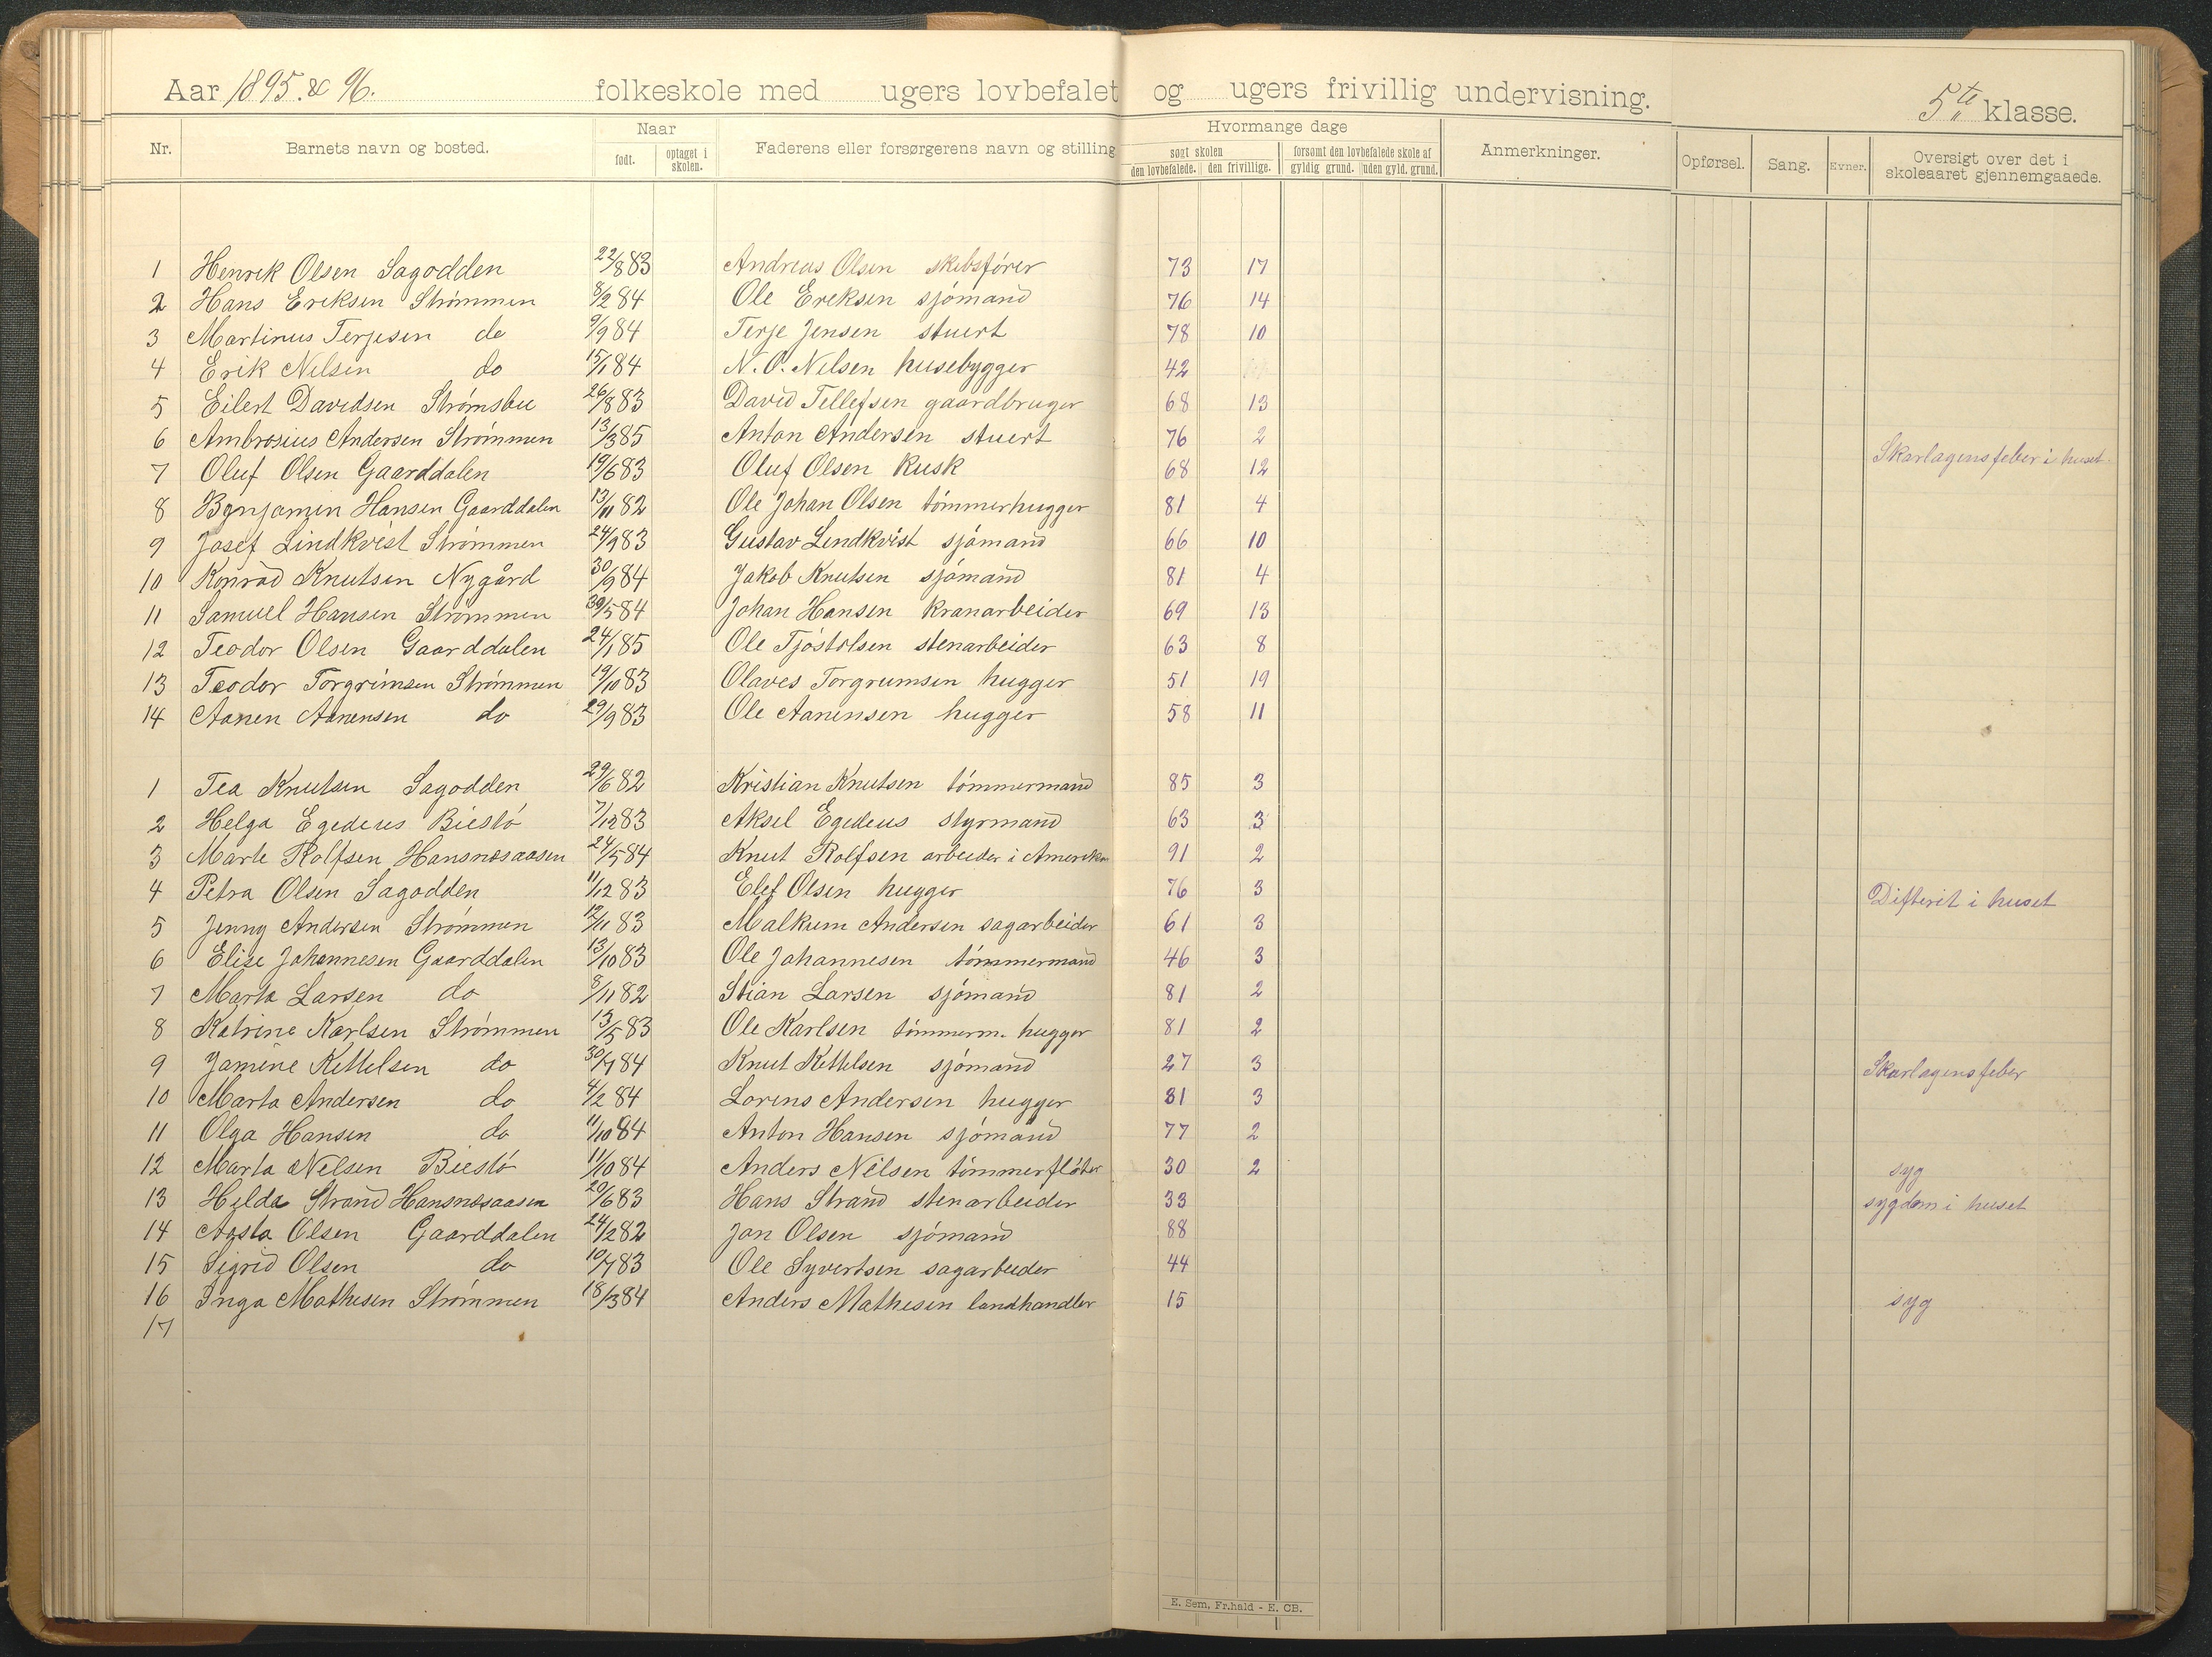 Aar 1895 & 96. folkeskole med ugers lovbefalet og ugers frivillig undervisning. 5te klasse.
Nr. Barnets navn og bosted. Naar født. optaget i skolen. Faderens eller forsørgerens navn og stilling Hvormange dage søgt skolen den lovbefalede. den frivillige. forsømt den lovbefalede skole af gyldig grund. uden gyld. grund. Anmerkninger. Opførsel. Sang. Evner. Oversigt over det i skoleaaret gjennemgaaede.
1 Henrik Olsen Sagodden 22/8 83 Andreas Olsen skibsfører 73 17
2 Hans Eriksen Strømmen 8/2 84 Ole Ereksen sjømand 76 14
3 Martinus Terjesen do 9/9 84 Terje Jensen stuert 78 10
4 Erik Nilsen do 15/1 84 N. O. Nilsen husebygger 42
5 Eilert Davidsen Strømsbu 26/8 83 David Tellefsen gaardbruger 68 13
6 Ambrosius Andersen Strømmen 13/3 85 Anton Andersen stuert 76 2
7 Oluf Olsen Gaarddalen 19/6 83 Oluf Olsen Kusk 68 12 Skarlagensfeber i huset
8 Benjamin Hansen Gaarddalen 13/11 82 Ole Johan Olsen tømmerhugger 81 4
9 Josef Lindkvist Strømmen 24/9 83 Gustav Lindkvist sjømand 66 10
10 Konrad Knutsen Nygård 30/9 84 Jakob Knutsen sjømand 81 4
11 Samuel Hansen Strømmen 30/5 84 Johan Hansen Kranarbeider 69 13
12 Teodor Olsen Gaarddalen 24/1 85 Ole Tjøstolsen stenarbeider 63 8
13 Teodor Torgrimsen Strømmen 19/10 83 Olaves Torgrumsen hugger 51 19
14 Aanen Aanensen do 29/9 83 Ole Aanensen hugger 58 11
1 Tea Knutsen Sagodden 29/6 82 Kristian Knutsen tømmermand 85 3
2 Helga Egedeus Biestø 7/12 83 Aksel Egedeus styrmand 63 3
3 Marte Rolfsen Hansnesaasen 24/5 84 Knut Rolfsen arbeider i Amerika 91 2
4 Petra Olsen Sagodden 11/12 83 Elef Olsen hugger 76 3 Difterit i huset
5 Jenny Andersen Strømmen 12/11 83 Malkum Andersen sagarbeider 61 3
6 Elise Johannesen Gaarddalen 13/10 83 Ole Johannesen tømmermand 46 3
7 Marta Larsen do 8/11 82 Stian Larsen sjømand 81 2
8 Katrine Karlsen Strømmen 13/5 83 Ole Karlsen tømmerm. hugger 81 2
9 Jamine Kettelsen do 30/7 84 Knut Kettelsen sjømand 27 3 Skarlagensfeber
10 Marta Andersen do 4/2 84 Lorens Andersen hugger 81 3
11 Olga Hansen do 11/10 84 Anton Hansen sjømand 77 2
12 Marta Nelsen Biestø 11/10 84 Anders Nilsen tømmerfløter 30 2 syg
13 Helda Strand Hansnesaasen 20/6 83 Hans Strand stenarbeider 33 sygdom i huset
14 Agsta Olsen Gaarddalen 24/2 82 Jon Olsen sjømand 88
15 Sigrid Olsen do 10/7 83 Ole Syvertsen sagarbeider 44
16 Inga Mathisen Strømmen 18/3 84 Anders Mathesen landhandler 15 syg
17
E. Sem, Fr.hald - E. CB.